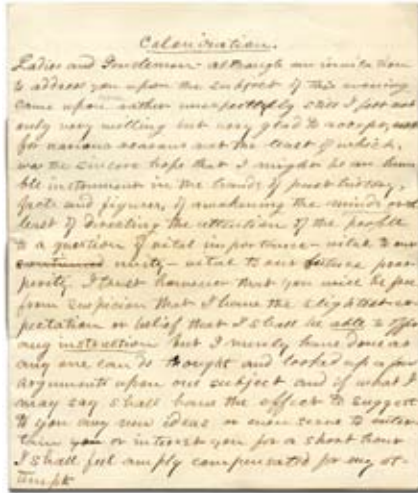 Colonization.
Ladies and Gentlemen - although an invitation
to address you upon the subject of this evening
came upon me rather unexpectedly still I felt not
only very willing but very glad to accept,
for various reasons not the least of which,
was the sincere hope that I might be an hum
ble instrument in the hands of past history,
facts and figures, of awakening the minds or at
least of directing the attention of the people
to a question of vital importance - vital to our
continued unity - vital to our future pros
perity. I trust however that you will be free
from suspicion that I have the slightest ex
pectation or belief that I shall be able to offer
any instruction but I merely have done as
any one can do thought and looked up a few
arguments upon our subject and if what I
may say shall have the effect to suggest
to you any new ideas or even serve to enter
tain you or interest you for a short hour
I shall feel amply compensated for my at-
tempt